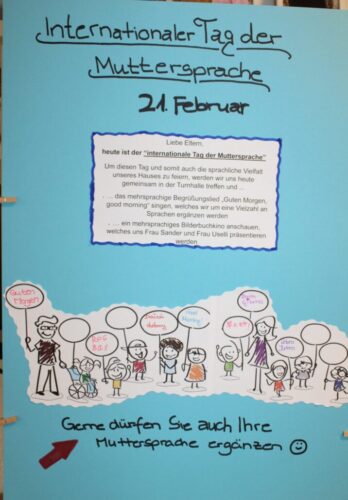 Internationaler Tag der
Muttersprache
21. Februar
Liebe Eltern,
heute ist der "internationale Tag der Muttersprache"
Um diesen Tag und somit auch die sprachliche Vielfalt
unseres Hauses zu feiern, werden wir uns heute
gemeinsam in der Turnhalle treffen und ...
- ... das mehrsprachige Begrüßungslied „Guten Morgen,
good morning" singen, welches wir um eine Vielzahl an
Sprachen ergänzen werden
- ... ein mehrsprachiges Bilderbuchkino anschauen,
welches uns Frau Sander und Frau Uselli präsentieren
werden
Guten
Morgen
Good
Morning
Gerne dürfen Sie auch Ihre
Muttersprache ergänzen ☺